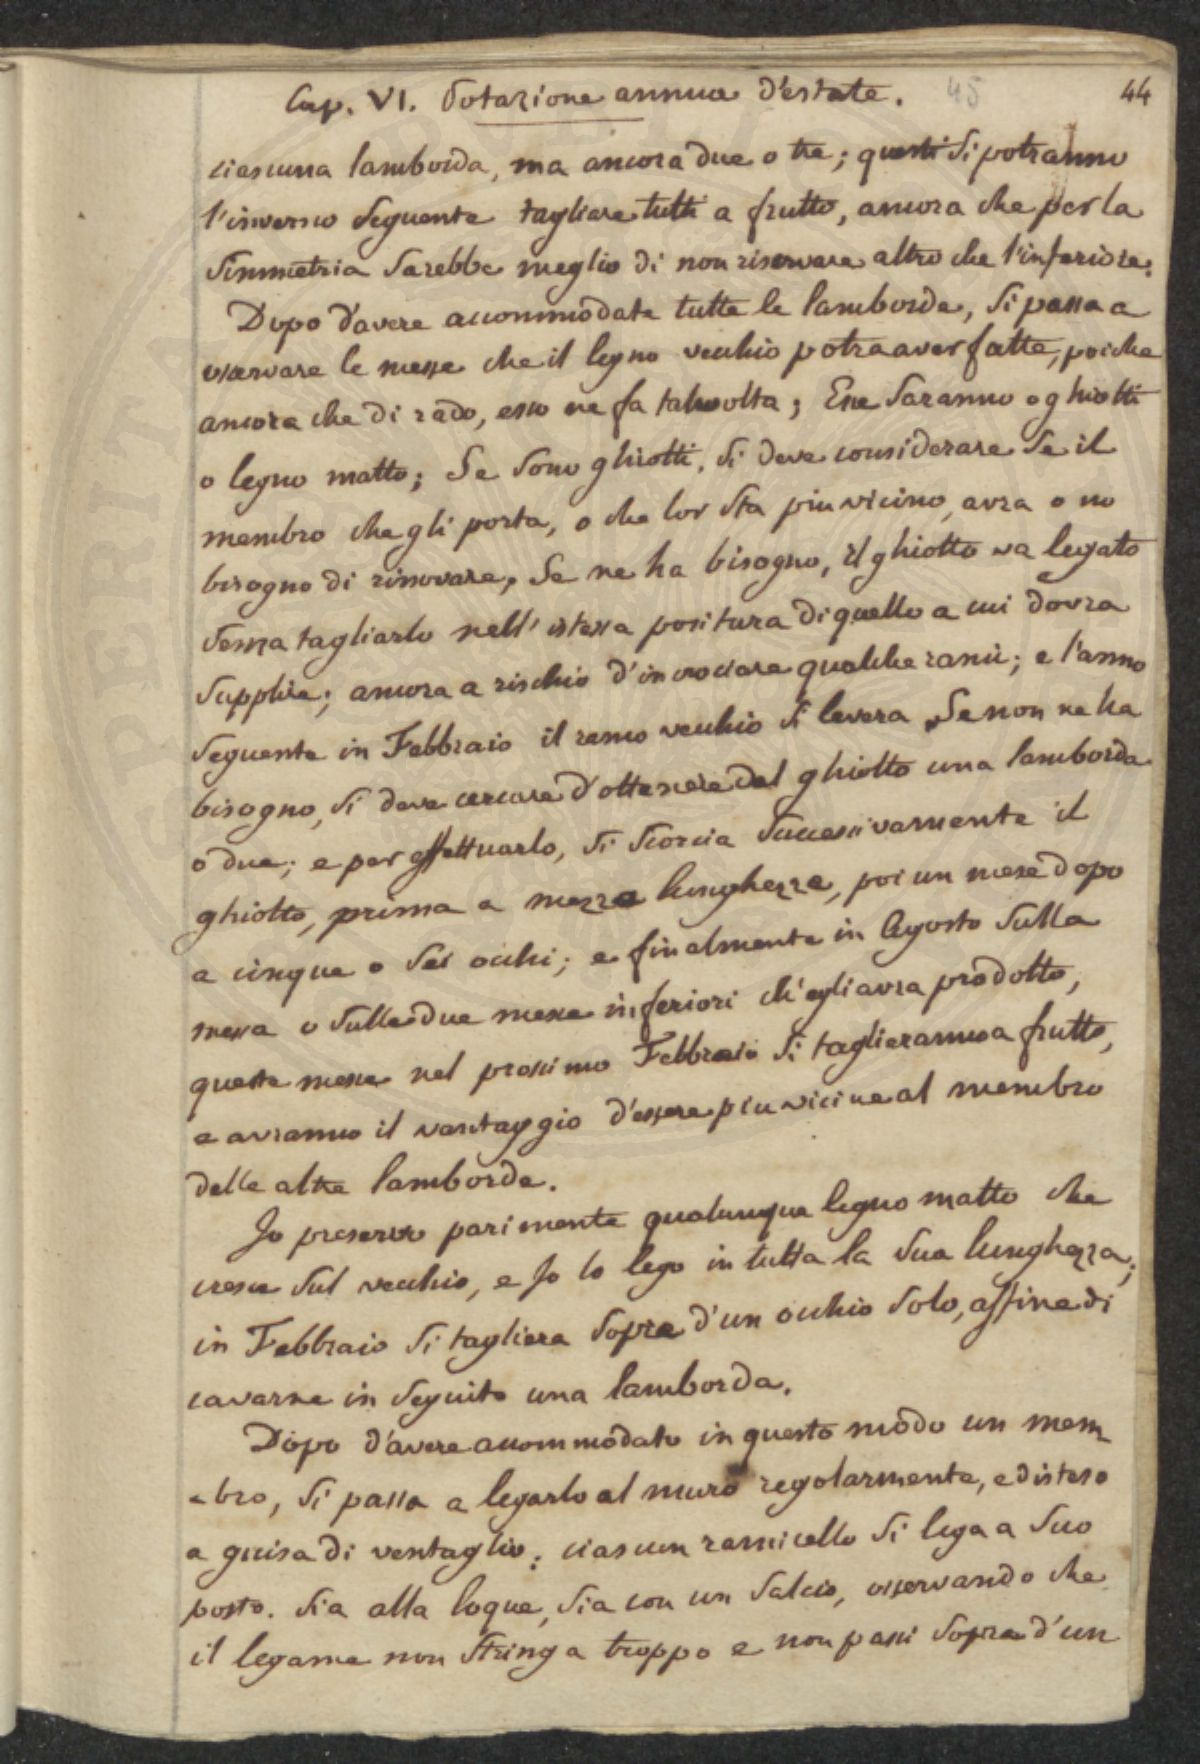 Cap. VI. Potazione annua d'estate. 45 44
ciascuna lamborda, ma ancora due o tre; questi si potranno
l'inverno seguente tagliare tutti a frutto, ancora che per la
Simmetria sarebbe meglio di non riservare altro che l'inferiore.
Dopo d'avere accommodate tutte le lamborde, si passa a
osservare le messe che il legno vecchio potra aver fatte, poiche
ancora che di rado, esso ne fa talvolta; Esse saranno o ghiotti
o legno matto; Se sono ghiotti, si deve considerare se il
membro che gli porta, o che lor sta piu vicino, avra o no
bisogno di rinnovare, Se ne ha bisogno, il ghiotto va legato
senza tagliarlo nell'istessa positura di quello a cui dovra
supplire; ancora a rischio d'incrociare qualche rami; e l'anno
seguente in Febbraio il ramo vecchio si levera. Se non ne ha
bisogno, si deve cercare d'ottenere dal ghiotto una lamborda
o due; e per effettuarlo, si scorcia successivamente il
ghiotto, prima a mezza lunghezza, poi un mese dopo
a cinque o sei occhi; e finalmente in Agosto sulla
messa o sulle due messe inferiori ch'egli avra prodotto,
queste messe nel prossimo Febbraio si taglieranno a frutto,
e avranno il vantaggio d'essere piu vicine al membro
delle altre lamborde.
Jo preservo parimente qualunque legno matto che
cresce sul vecchio, e Jo lo lego in tutta la sua lunghezza;
in Febbraio si tagliera sopra d'un occhio solo, affine di
cavarne in seguito una lamborda.
Dopo d'avere accommodato in questo modo un mem-
-bro, si passa a legarlo al muro regolarmente, e disteso
a guisa di ventaglio; ciascun ramicello si lega a suo
posto. sia alla loque, sia con un salcio, osservando che
il legame non stringa troppo e non passi sopra d'un